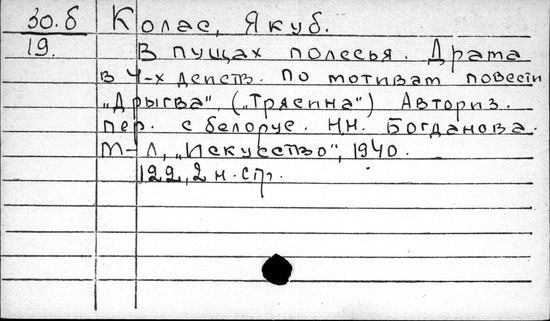 30.б
19.
Колас, Якуб.
В пущах полесья. Драма
в 4-х действ. по мотивам повести
„Дрыгва“, („Трясина“) Авториз.
пер. с белорус. Н.Н. Богданова.
М-Л, „Искусство“, 1940.
122, 2 н. стр.